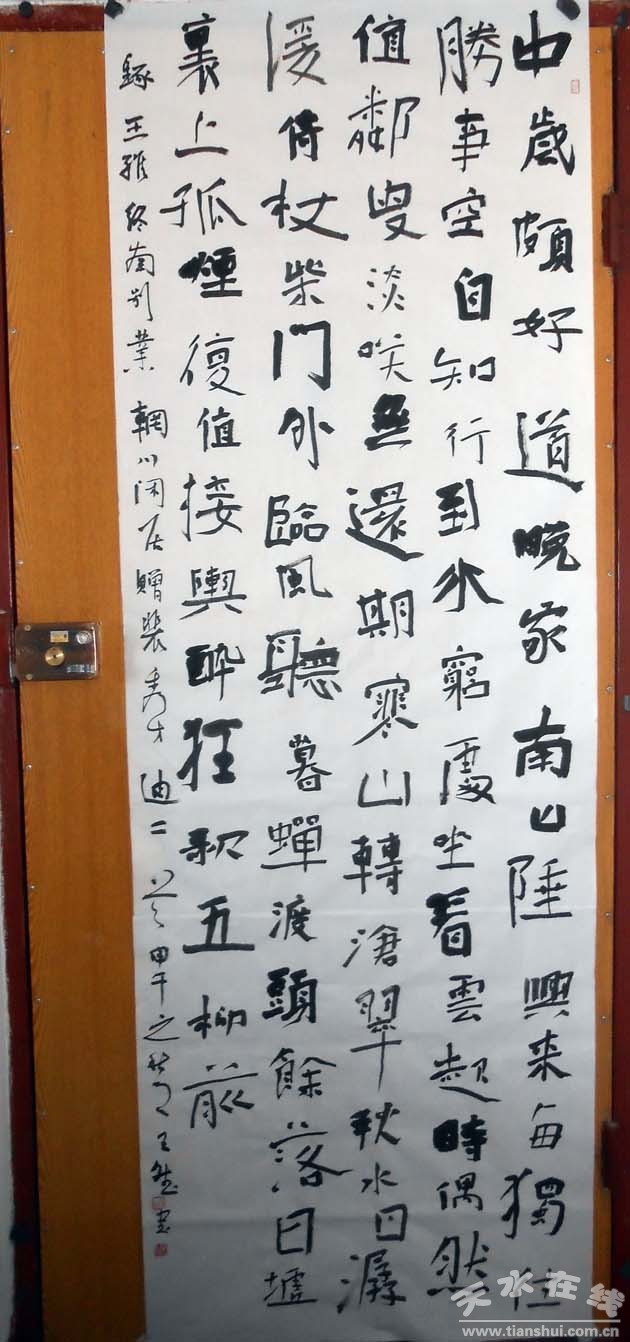 中歲頗好道晚家南山陲興来每獨往
勝事空自知行到水窮處坐看雲起時偶然
值鄰叟淡咲無還期寒山轉滄翠秋水日潺
湲倚杖柴門外臨風聽暮蟬渡頭餘落日墟
裏上孤煙復值接輿醉狂歌五柳前
録王維終南别業 輞川闲居贈裴秀才迪二首 甲午之秋月王 書
天水在线
www.tianshui.com.cn